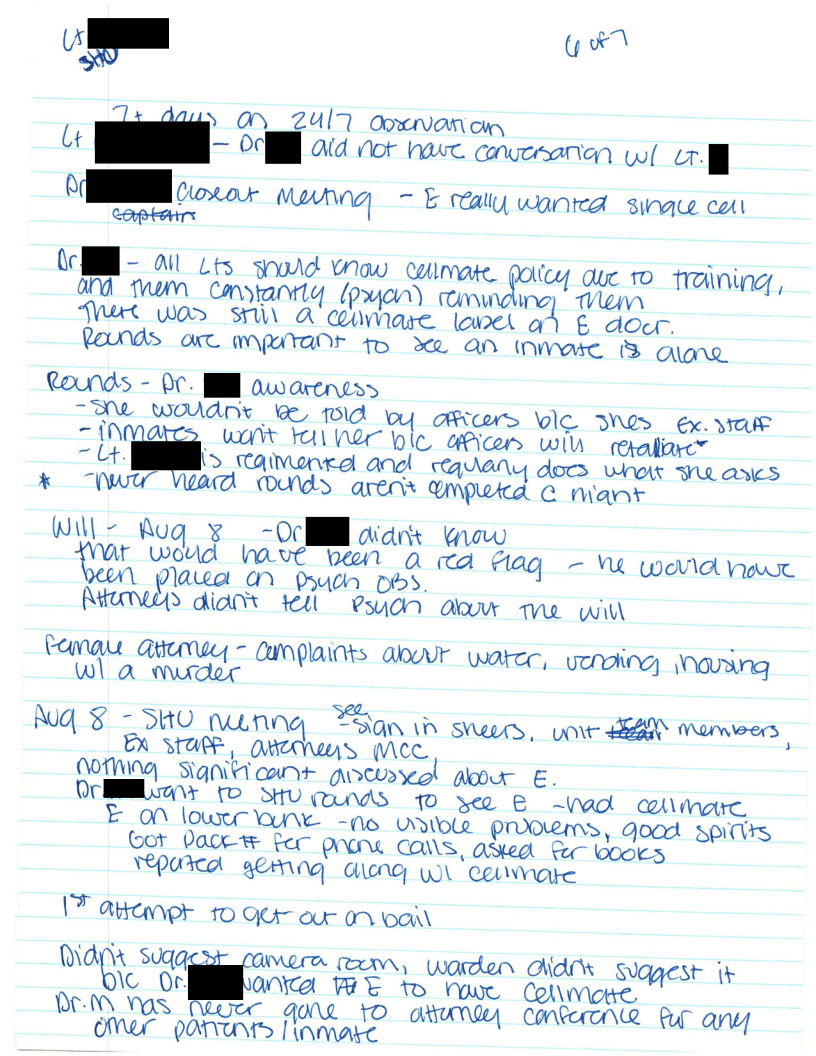 Lt
SHU
6 of 7
7+ days on 24/7 observation
Lt – Dr did not have conversation w/ Lt.
Dr closeout meeting – E really wanted single cell
captain
Dr. – all Lts should know cellmate policy due to training,
and them constantly (psych) reminding them
There was still a cellmate label on E door.
Rounds are important to see an inmate is alone
Rounds – Dr. awareness
- she wouldn't be told by officers b/c shes Ex. staff
- inmates won't tell her b/c officers will retaliate*
- Lt. is regimented and regularly does what she asks
* -never heard rounds aren't completed @ night
Will – Aug 8 – Dr didn't know
that would have been a red flag – he would have
been placed on psych OBS.
Attorneys didn't tell Psych about the will
Female attorney – complaints about water, vending, housing
w/ a murder
Aug 8 – SHU meeting see – sign in sheets, unit team team members,
Ex staff, attorneys MCC
nothing significant discussed about E.
Dr want to SHU rounds to see E – had cellmate
E on lower bunk – no visible problems, good spirits
Got pack # for phone calls, asked for books
reported getting along w/ cellmate
1st attempt to get out on bail
Didn't suggest camera room, warden didn't suggest it
b/c Dr. wanted E to have cellmate
Dr. M has never gone to attorney conference for any
other patients/inmate